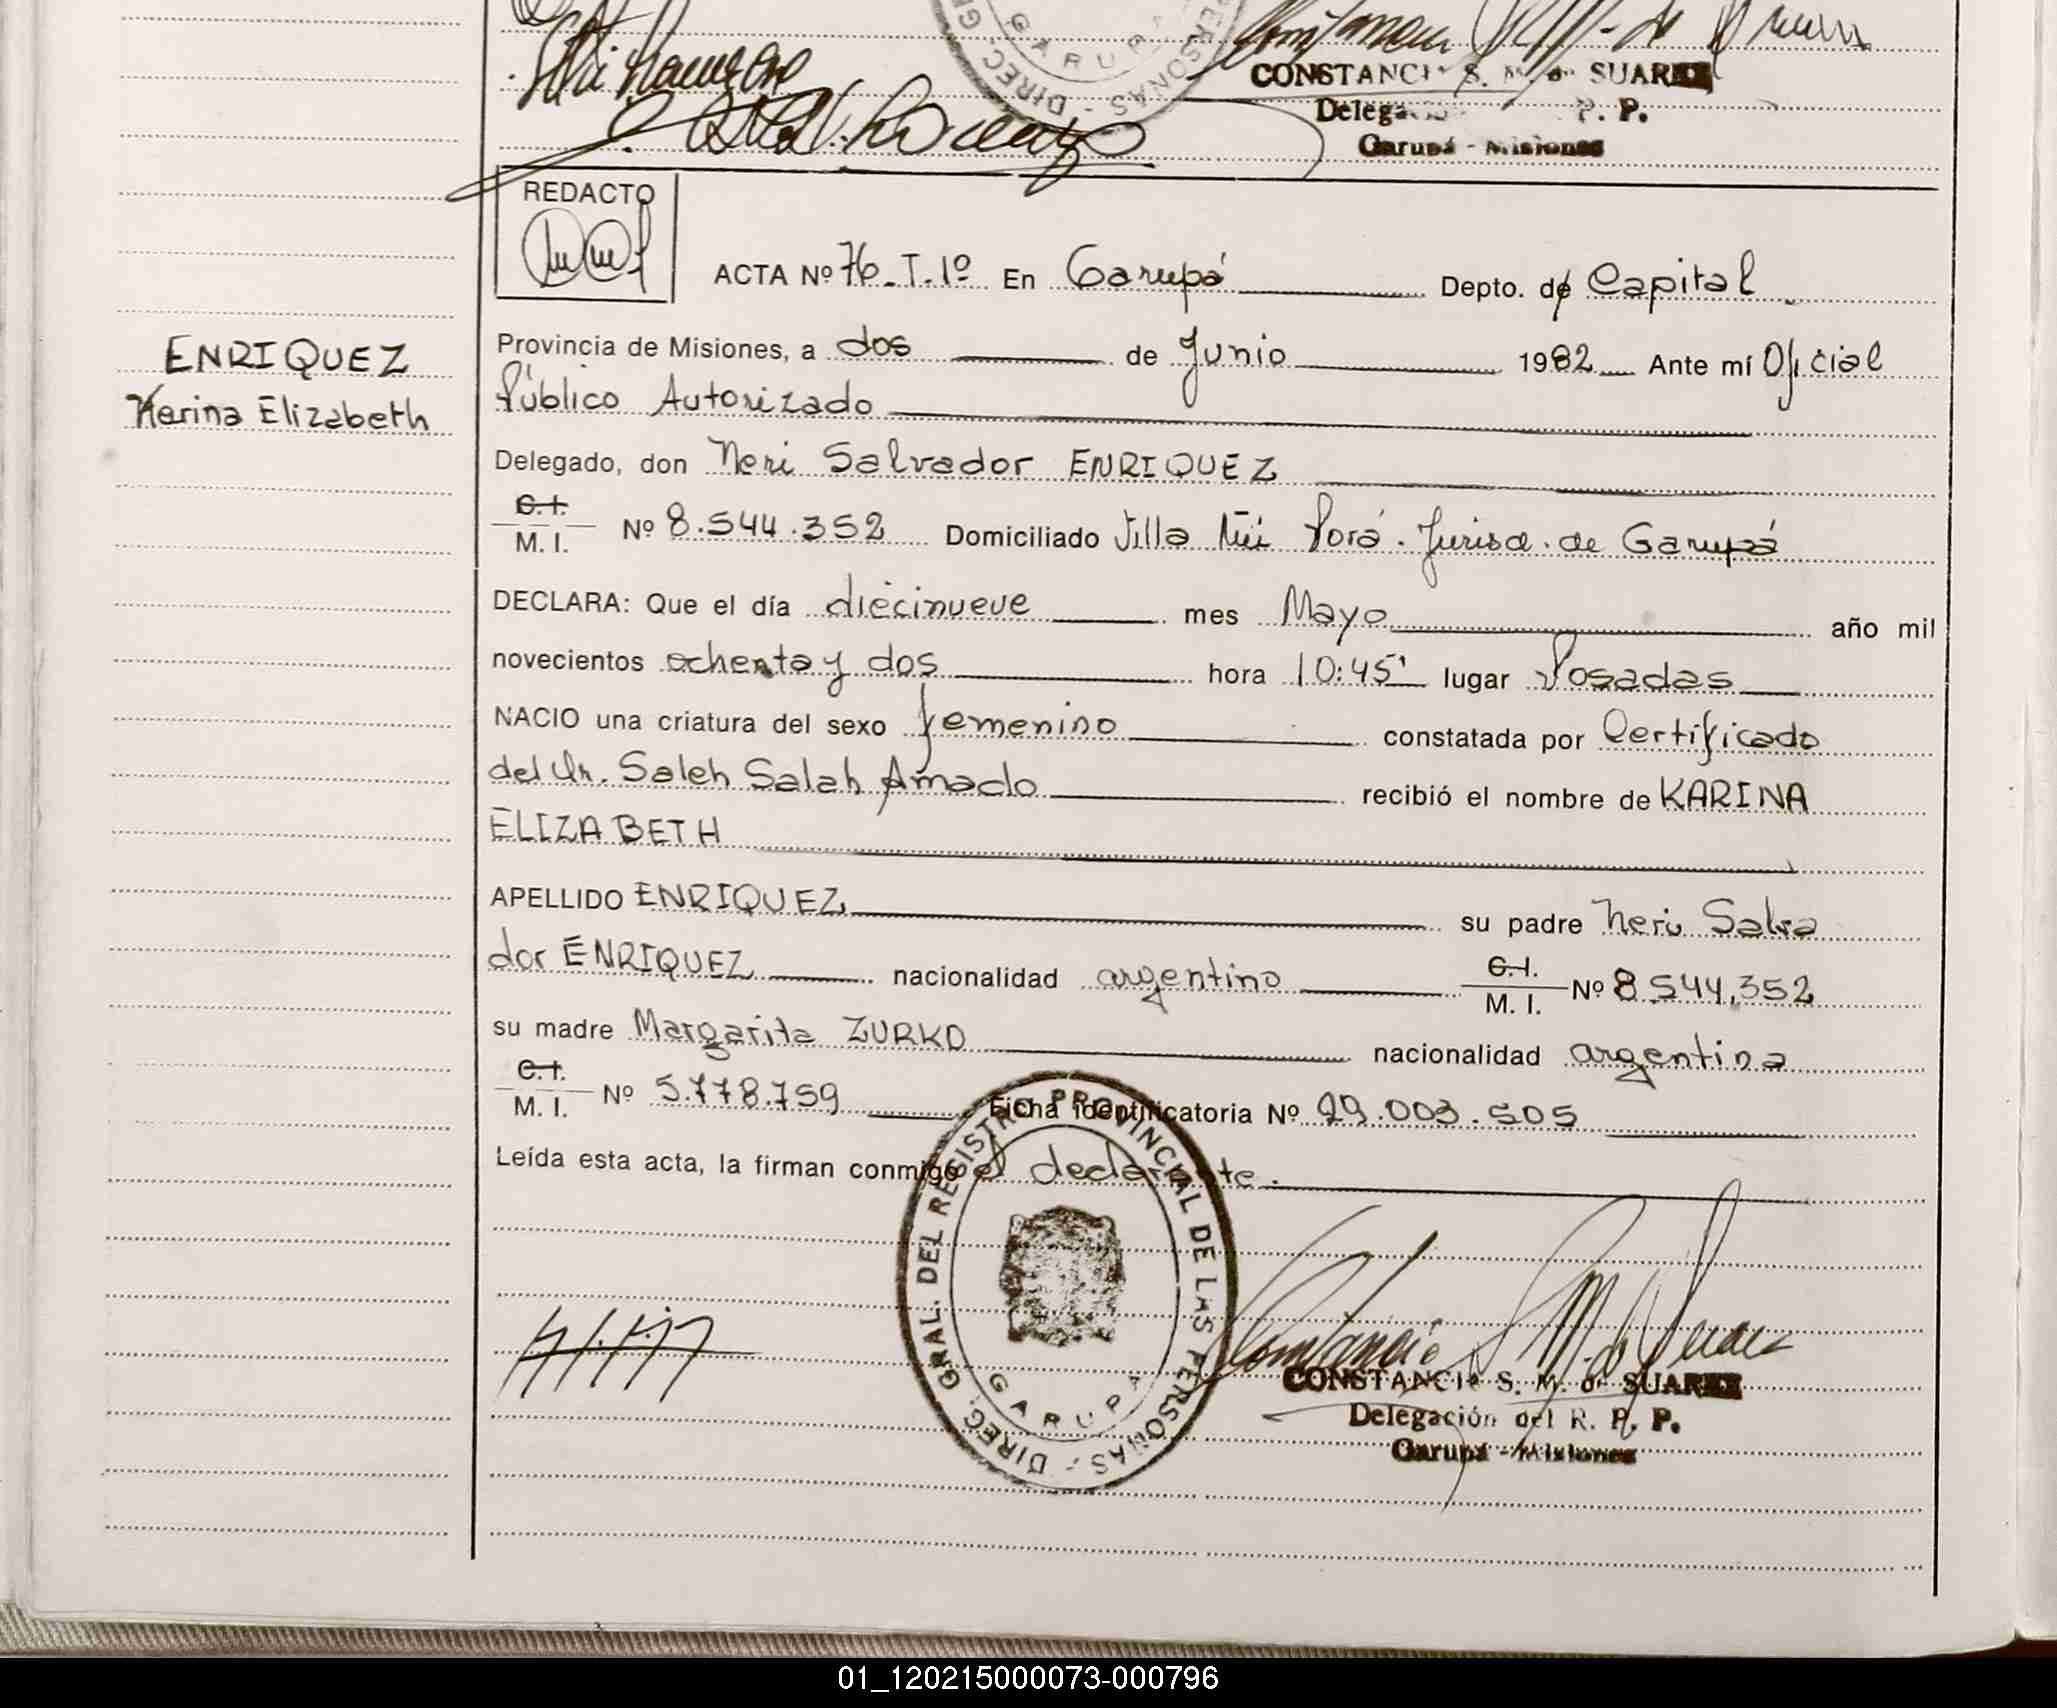 GARUPA
PERSONAS - DIREC. GR
CONSTANCIA S. M. de SUAREZ
Delegac P. P.
Garupá - Misiones
REDACTO
ACTA Nº 76-T.1º En Garupá Depto. de Capital
ENRIQUEZ
Karina Elizabeth
Provincia de Misiones, a dos de Junio 1982 Ante mí Oficial
Público Autorizado
Delegado, don Neri Salvador ENRIQUEZ
C.I.
M. I. Nº 8.544.352 Domiciliado Villa Porá. Jurisd. de Garupá
DECLARA: Que el día diecinueve mes Mayo año mil
novecientos ochenta y dos hora 10:45' lugar Posadas
NACIO una criatura del sexo femenino constatada por Certificado
del Dr. Saleh Salah Amado recibió el nombre de KARINA
ELIZABETH
APELLIDO ENRIQUEZ su padre Neri Salva
dor ENRIQUEZ nacionalidad argentino C.I. M. I. Nº 8.544,352
su madre Margarita ZURKO nacionalidad argentina
C.I.
M. I. Nº 5.778.759 Ficha identificatoria Nº 29.003.505
Leída esta acta, la firman conmigo el declarante.
DIREC. GRAL. DEL REGISTRO PROVINCIAL DE LAS PERSONAS -
GARUPA
CONSTANCIA S. M. de SUAREZ
Delegación del R. P. P.
Garupá - Misiones
01_120215000073-000796